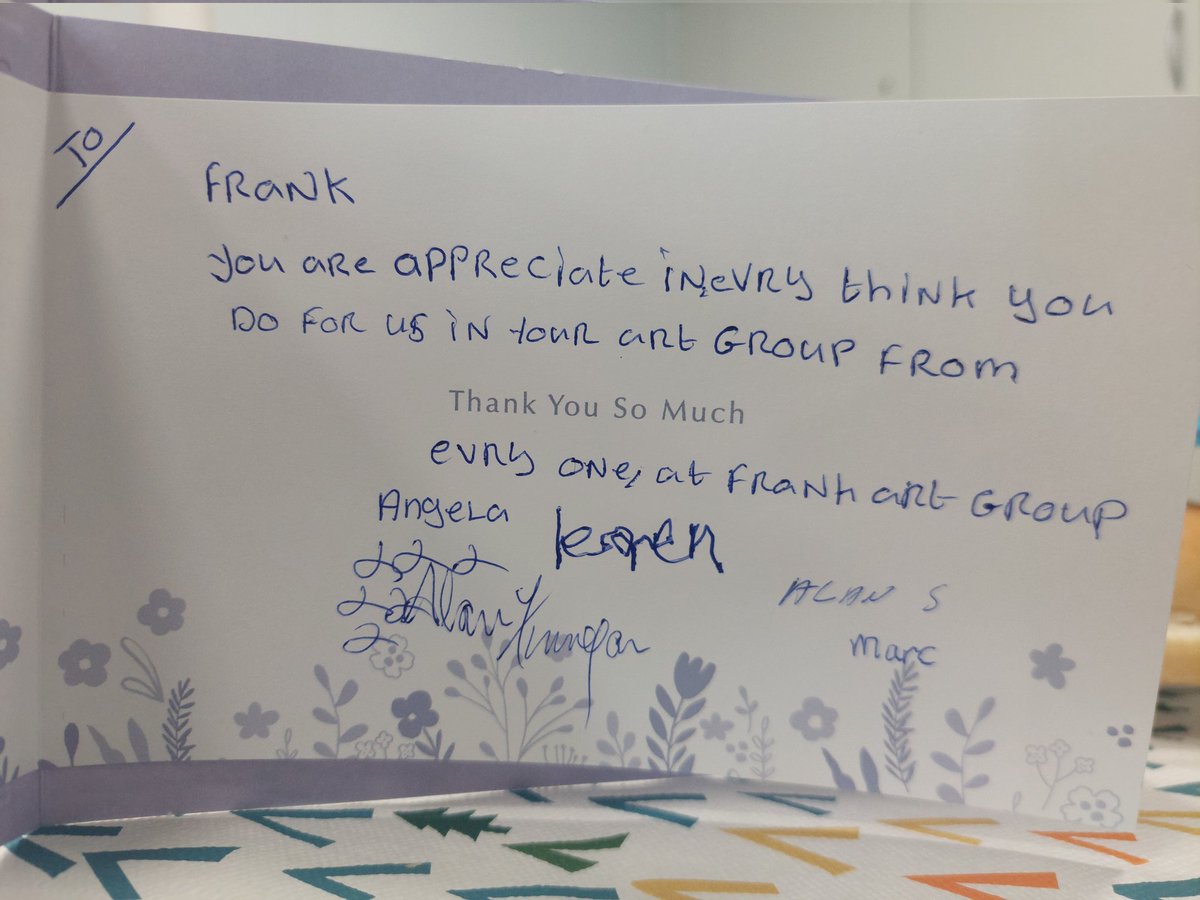 TO
FRANK
you are appreciate in evry think you
Do FOR us in your art GROUP FROM
Thank You So Much
evry one, at Frank art GROUP
Angela
Alan
ALAN S
Marc